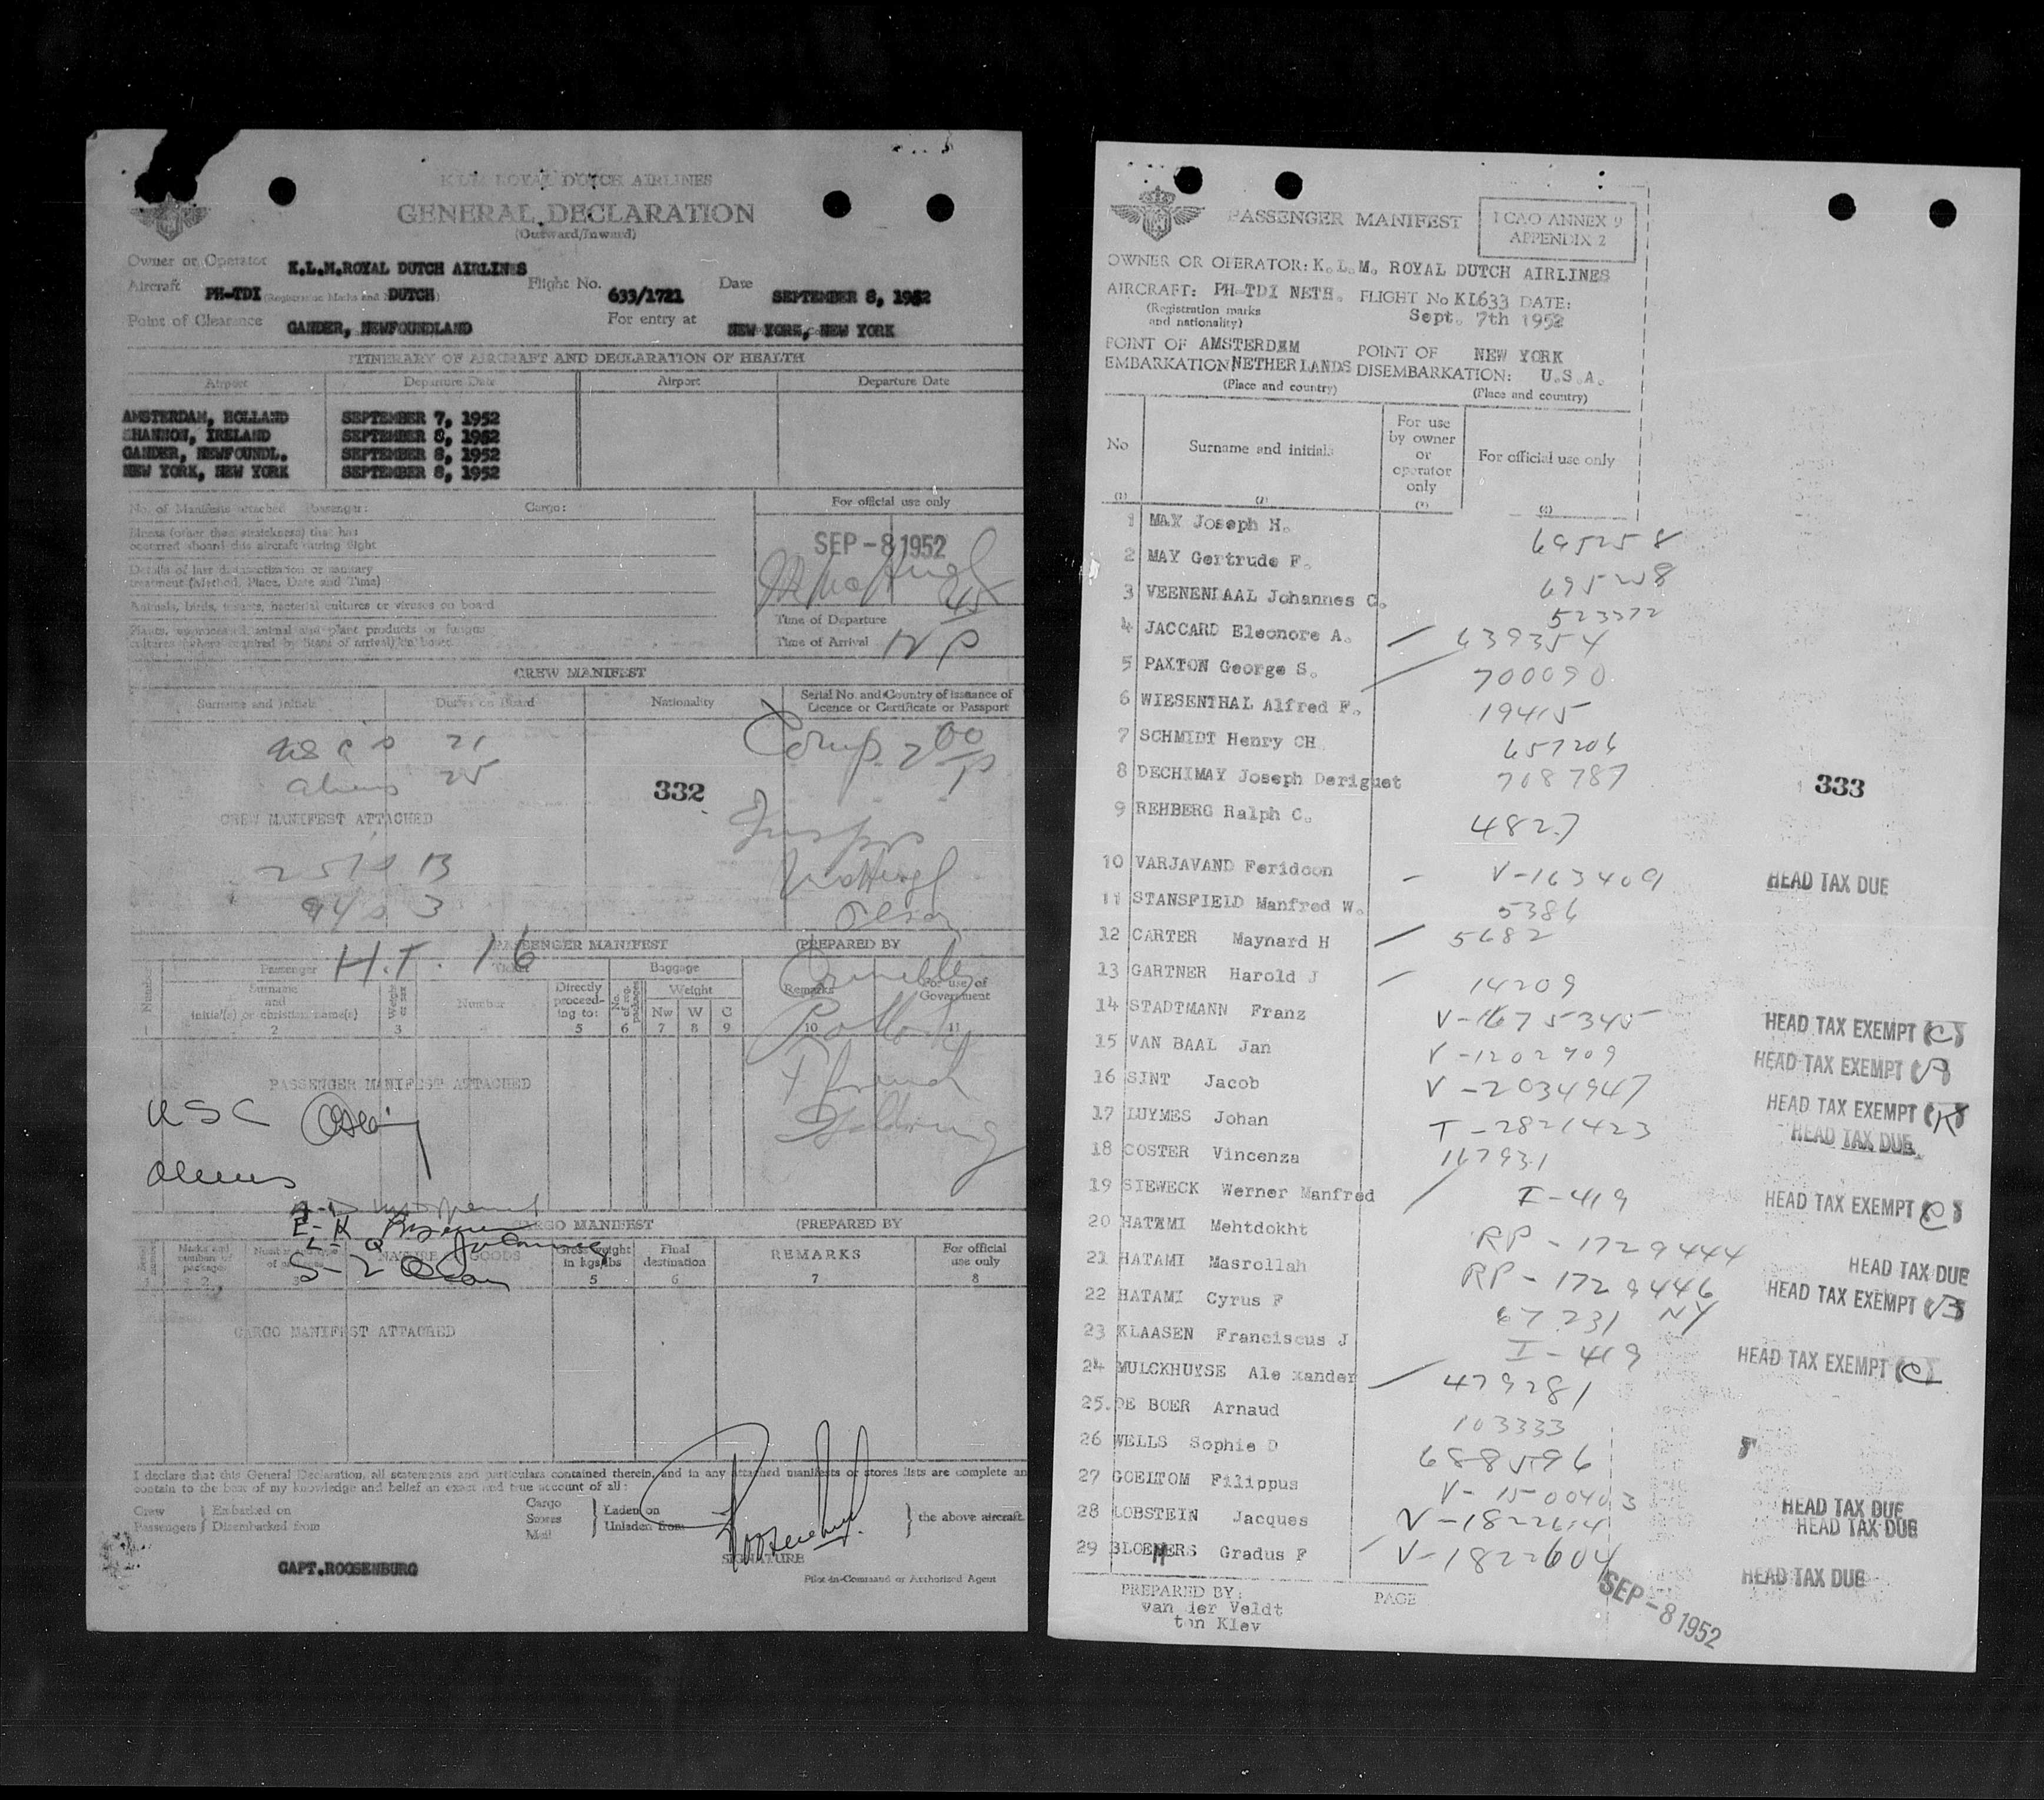 K.L.M. ROYAL DUTCH AIRLINES
GENERAL DECLARATION
(Outward/Inward)
Owner or Operator K.L.M.ROYAL DUTCH AIRLINES
Aircraft PH-TDI (Registration Marks and DUTCH) Flight No. 633/1721 Date SEPTEMBER 8, 1952
Point of Clearance GANDER, NEWFOUNDLAND For entry at NEW YORK, NEW YORK
ITINERARY OF AIRCRAFT AND DECLARATION OF HEALTH
Airport Departure Date Airport Departure Date
AMSTERDAM, HOLLAND SEPTEMBER 7, 1952
SHANNON, IRELAND SEPTEMBER 8, 1952
GANDER, NEWFOUNDL. SEPTEMBER 8, 1952
NEW YORK, NEW YORK SEPTEMBER 8, 1952
No. of Manifests attached Passenger: Cargo: For official use only
Illness (other than airsickness) that has
occurred aboard this aircraft during flight
SEP - 8 1952
Details of last disinsectization or sanitary
treatment (Method, Place, Date and Time)
Animals, birds, insects, bacterial cultures or viruses on board
Time of Departure
Time of Arrival
CREW MANIFEST
Surname and Initials Duties on Board Nationality Serial No. and Country of issuance of
Licence or Certificate or Passport
21
aliens 25
332
CREW MANIFEST ATTACHED
H.T. 16
PASSENGER MANIFEST (PREPARED BY
Passenger Ticket Baggage
Number Surname
and
initial(s) or christian name(s) Weight Number Directly
proceed-
ing to: No. of pkg. packages Weight Remarks For use of
Government
Nw W C
1 2 3 4 5 6 7 8 9 10 11
PASSENGER MANIFEST ATTACHED
USC
aliens
CARGO MANIFEST (PREPARED BY
Marks and
numbers of
packages NATURE OF GOODS Gross weight
in kgs/lbs Final
destination REMARKS For official
use only
5 6 7 8
CARGO MANIFEST ATTACHED
I declare that this General Declaration, all statements and particulars contained therein, and in any attached manifests or stores lists are complete an
contain to the best of my knowledge and belief an exact and true account of all:
Crew
Passengers
Embarked on
Disembarked from
Cargo
Stores
Mail
Laden on
Unladen from
the above aircraft.
CAPT.ROOSENBURG
SIGNATURE
Pilot-in-Command or Authorized Agent
PASSENGER MANIFEST
ICAO ANNEX 9
APPENDIX 2
OWNER OR OPERATOR: K.L.M. ROYAL DUTCH AIRLINES
AIRCRAFT: PH-TDI NETH. FLIGHT No KL633 DATE:
(Registration marks
and nationality)
Sept. 7th 1952
POINT OF AMSTERDAM POINT OF NEW YORK
EMBARKATION NETHERLANDS DISEMBARKATION: U.S.A.
(Place and country) (Place and country)
No Surname and initials For use
by owner
or
operator
only For official use only
(1) (2) (3) (4)
1 MAX Joseph H. 695258
2 MAY Gertrude F. 695258
3 VEENENDAAL Johannes C. 523372
4 JACCARD Eleonore A. 639354
5 PAXTON George S. 700090
6 WIESENTHAL Alfred F. 19415
7 SCHMIDT Henry CH 657206
8 DECHIMAY Joseph Deriguet 708787
333
9 REHBERG Ralph C. 4827
10 VARJAVAND Feridoon V-163409 HEAD TAX DUE
11 STANSFIELD Manfred W. 5386
12 CARTER Maynard H 5682
13 GARTNER Harold J 14209
14 STADTMANN Franz V-1675345 HEAD TAX EXEMPT (C)
15 VAN BAAL Jan V-1202909 HEAD TAX EXEMPT (A)
16 SINT Jacob V-2034947 HEAD TAX EXEMPT (K)
17 LUYMES Johan T-2821423 HEAD TAX DUE
18 COSTER Vincenza 117931
19 SIEWECK Werner Manfred I-419 HEAD TAX EXEMPT (C)
20 HATAMI Mehtdokht RP-1729444 HEAD TAX DUE
21 HATAMI Masrollah RP-1729446 HEAD TAX EXEMPT (B)
22 HATAMI Cyrus F 67231 NY
23 KLAASEN Franciscus J I-419 HEAD TAX EXEMPT (C)
24 MULCKHUYSE Alexander 479281
25. DE BOER Arnaud 103333
26 WELLS Sophie D 688596
27 GOEITOM Filippus V-1500403 HEAD TAX DUE
28 LOBSTEIN Jacques V-1822614 HEAD TAX DUE
29 BLOEMERS Gradus F V-1822604 HEAD TAX DUE
PREPARED BY: PAGE
van der Veldt
ten Kley
SEP - 8 1952